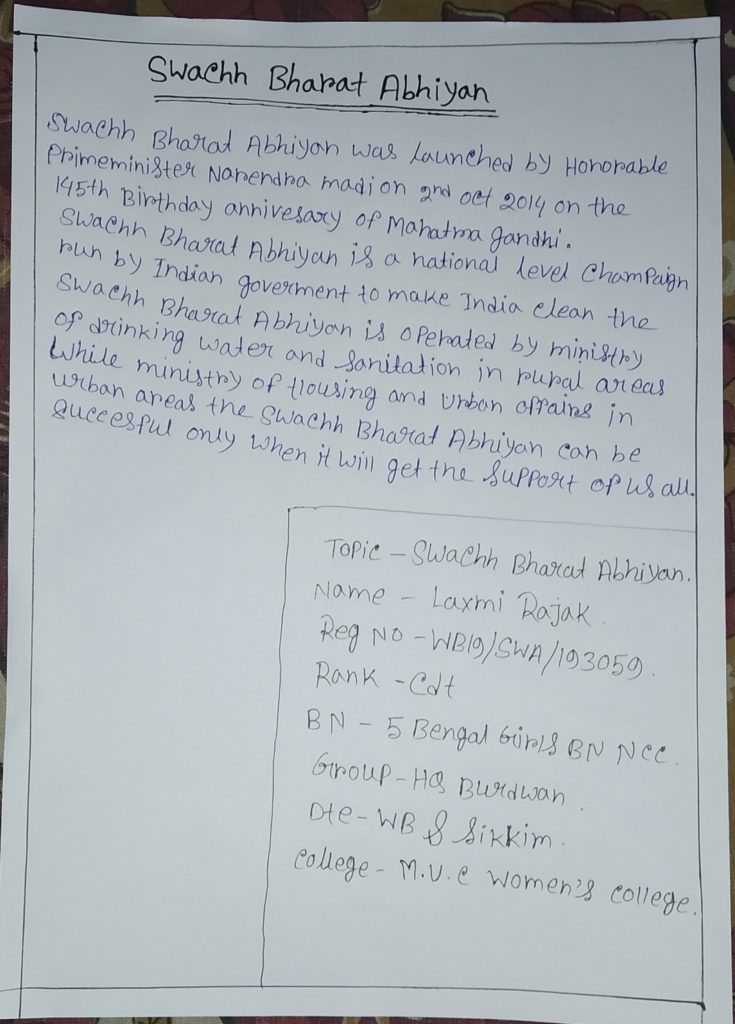 Swachh Bharat Abhiyan
Swachh Bharat Abhiyan was launched by Honorable
Primeminister Narendra madi on 2nd oct 2014 on the
145th Birthday annivesary of Mahatma gandhi.
Swachh Bharat Abhiyan is a national level Champaign
run by Indian goverment to make India clean the
Swachh Bharat Abhiyan is operated by ministry
of drinking water and sanitation in rural areas
While ministry of Housing and Urban affairs in
urban areas the Swachh Bharat Abhiyan can be
succesful only when it will get the support of us all.
Topic - Swachh Bharat Abhiyan.
Name - Laxmi Rajak.
Reg No - WB19/SWA/193059.
Rank - Cdt
BN - 5 Bengal Girls BN NCC.
Group - HQ Burdwan.
Dte - WB & Sikkim.
College - M.U.C Women's College.